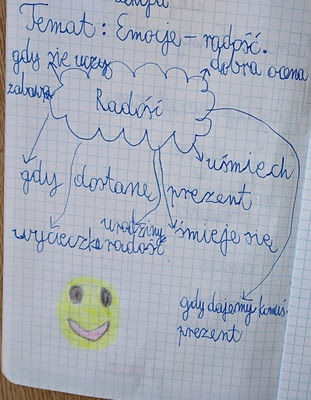 Temat: Emocje – radość.
gdy się uczy
dobra ocena
zabawa
Radość
uśmiech
gdy dostanę prezent
urodziny
wycieczka radość śmieje się
gdy dajemy komuś
prezent